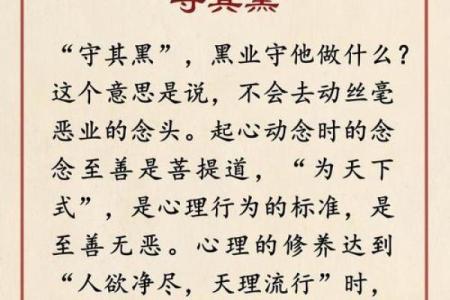 守其黑
“守其黑”，黑业守他做什么？
这个意思是说，不会去动丝毫
恶业的念头。起心动念时的念
念至善是菩提道，“为天下
式”，是心理行为的标准，是
至善无恶。心理的修养达到
“人欲净尽，天理流行”时，